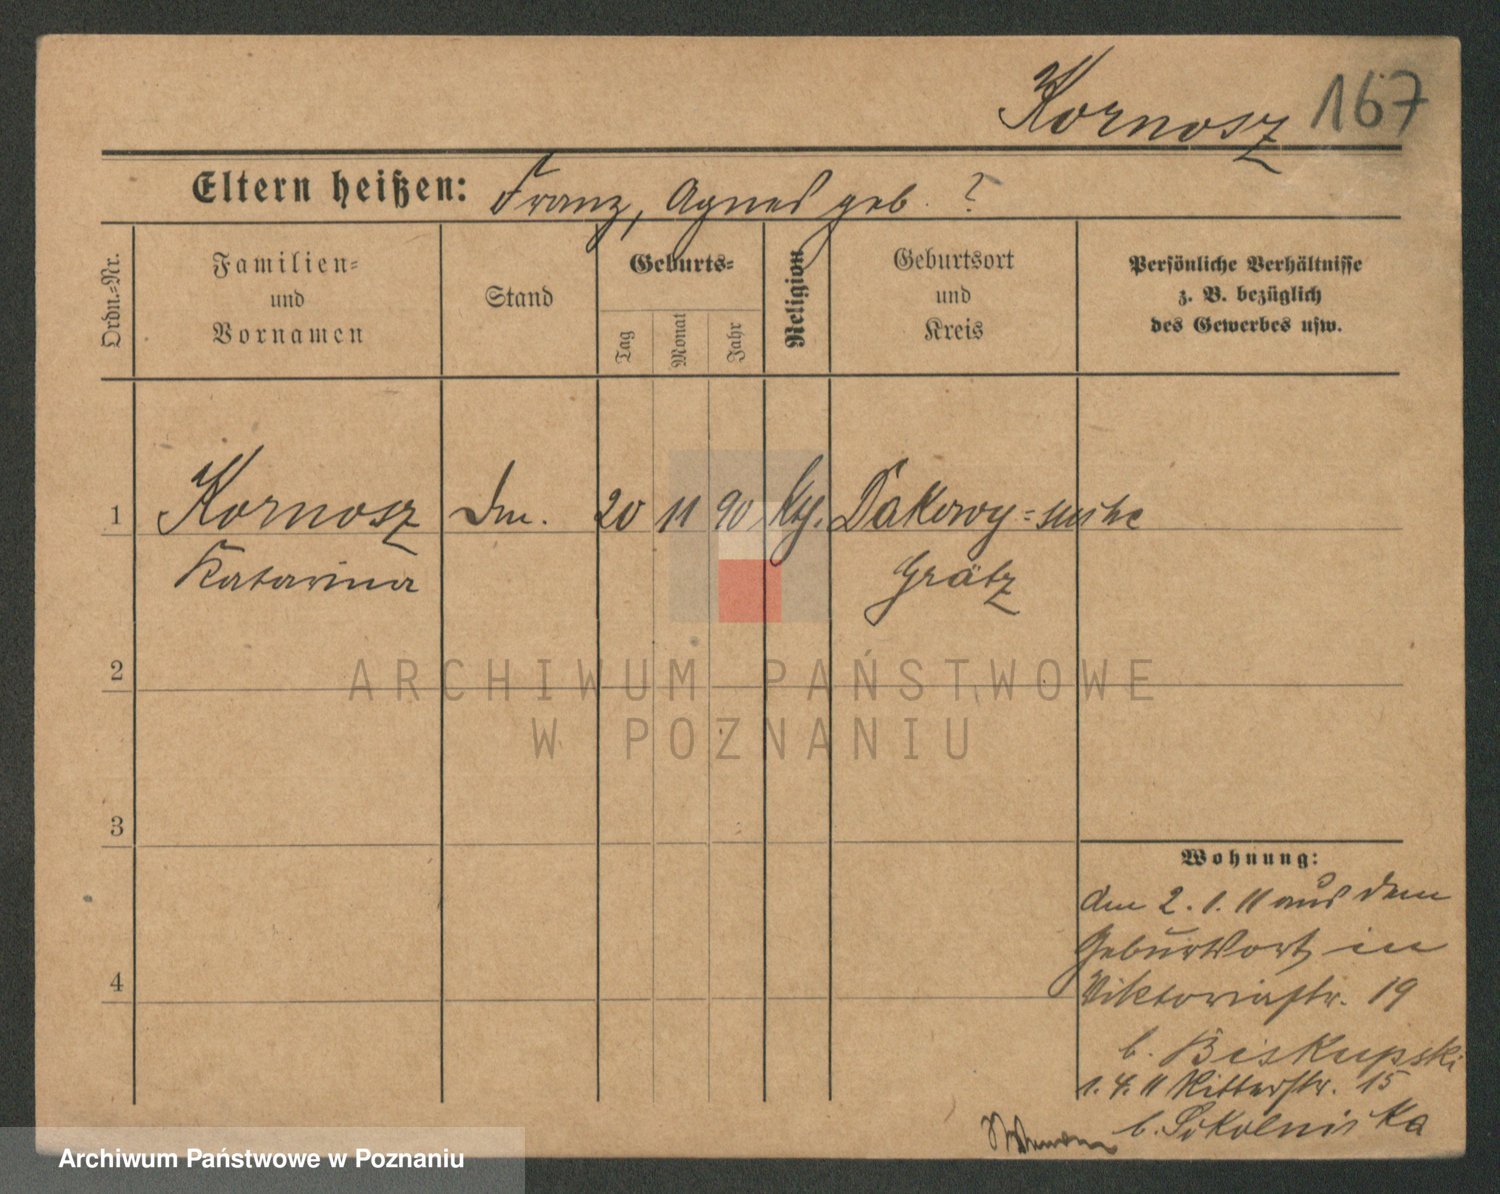 Kornosz 167
Eltern heißen: Franz, Agnes geb. ?
Ordn.-Nr.
Familien-
und
Vornamen
Stand
Geburts-
Tag
Monat
Jahr
Religion
Geburtsort
und
Kreis
Persönliche Verhältnisse
z. B. bezüglich
des Gewerbes usw.
1 Kornosz Dm. 20 11 90 Kth. Dakowy-suche
Katarina Grätz
2
3
4
Wohnung:
den 2. 1. 11 aus dem
Geburtsort in
Viktoriastr. 19
b. Biskupski
1. 4. 11 Ritterstr. 15
b. Sokolniska
ARCHIWUM PAŃSTWOWE
W POZNANIU
Archiwum Państwowe w Poznaniu